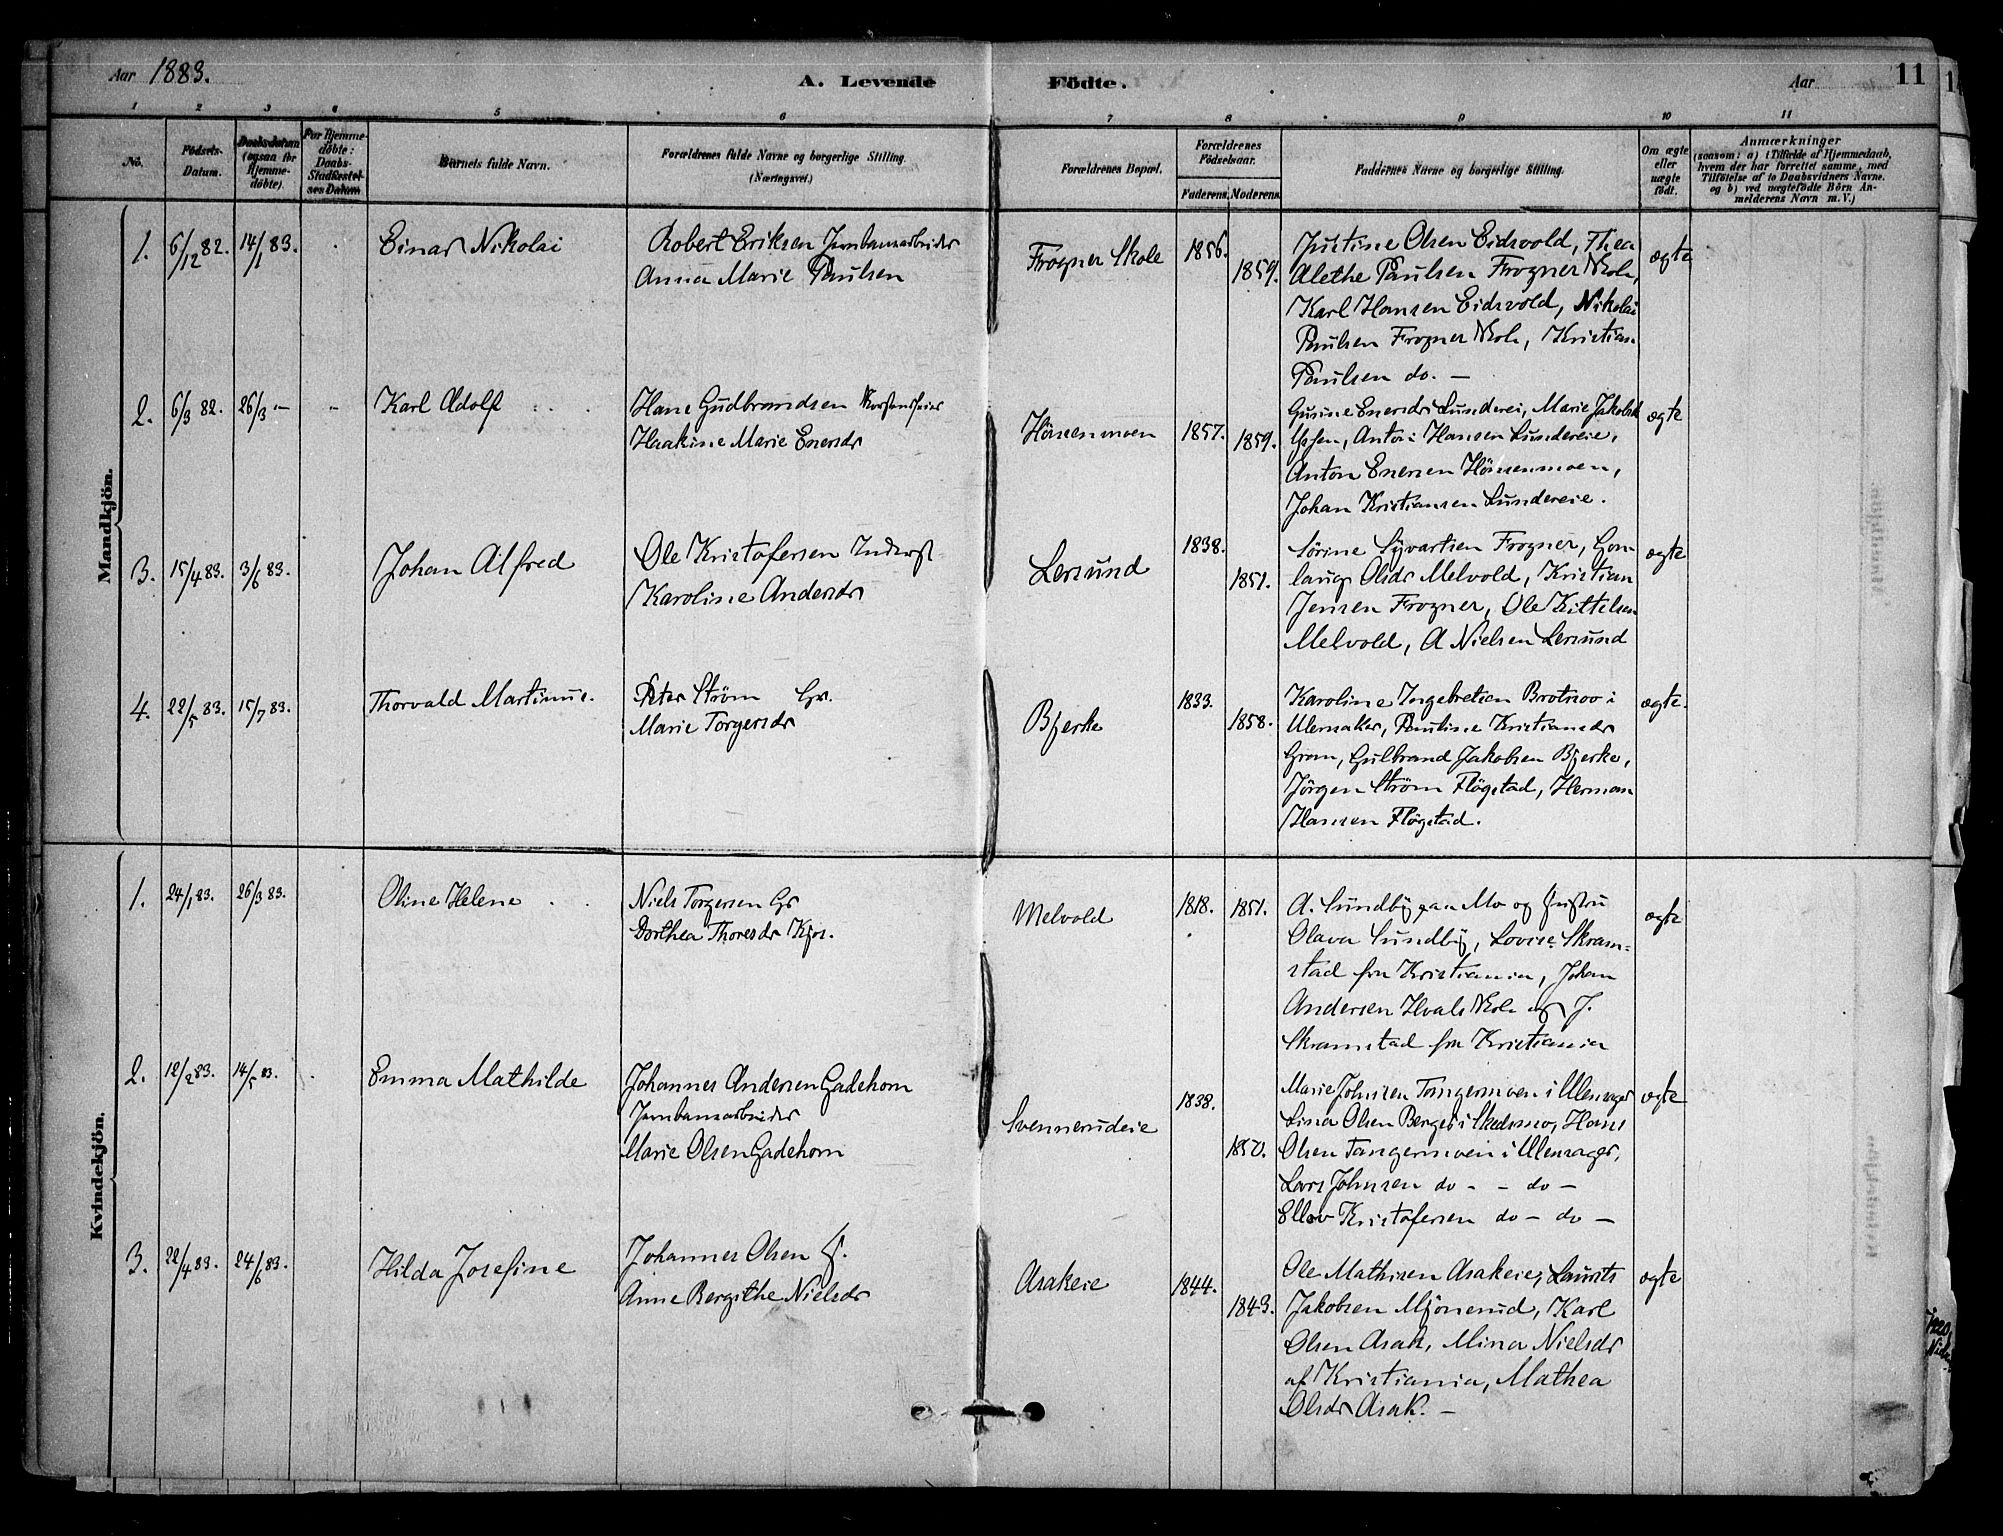 Aar 1883. A. Levende Födte. Aar 11
1 2 3 4 5 6 7 8 9 10 11
No. Födsels-Datum. Daabsdatum (ogsaa for Hjemmedöbte). For Hjemmedöbte: Daabs-Stadfæstelses Datum. Barnets fulde Navn. Forældrenes fulde Navne og borgerlige Stilling. (Næringsvei.) Forældrenes Bopæl. Forældrenes Födselsaar. Faderens. Moderens. Faddernes Navne og borgerlige Stilling. Om ægte eller uægte födt. Anmærkninger
(saasom: a) i Tilfælde af Hjemmedaab,
hvem der har forrettet samme, med
Tilföielse af to Daabsvidners Navne.
og b) ved uægtefödte Börn An-
melderens Navn m. V.)
Mandkjön.
1. 6/12 82. 14/1 83. Einar Nikolai
Robert Eriksen Jernbanearbeider
Anna Marie Paulsen
Frogner Skole 1856. 1859.
Justine Olsen Eidsvold, Thea
Alethe Paulsen Frogner Skole,
Karl Hansen Eidsvold, Nikolai
Paulsen Frogner Skole, Kristian
Paulsen do. —
ægte
2. 6/3 82. 26/3 — Karl Adolf
Hans Gudbrandsen
Haakine Marie Enersdr
Hönsenmoen 1857. 1859.
Gusine Enersdr Lundereie, Marie Jakobsdr
Anton Hansen Lundereie,
Anton Enersen Hönsenmoen,
Johan Kristiansen Lundereie.
ægte
3. 15/4 83. 3/6 83. Johan Alfred
Ole Kristofersen Inderst
Karoline Andersdr
Lersund 1838. 1851.
Sörine Syvartsen Frogner, Gon-
laug Olsdr Melvold, Kristian
Jensen Frogner, Ole Kittelsen
Melvold, A Nielsen Lersund
ægte
4. 22/5 83. 15/7 83. Thorvald Martinus.
Peter Strøm Gr.
Marie Torgersdr
Bjerke 1833. 1858.
Karoline Ingebretsen Brotnov i
Ulensaker, Pauline Kristiansdr
Gran, Gulbrand Jakobsen Bjerke,
Jörgen Strøm Flögstad, Herman
Hansen Flögstad.
ægte.
Kvindekjön.
1. 24/1 83. 26/3 83. Oline Helene
Niels Torgersen Gr
Dorthea Thoresdr Kjos.
Melvold 1818. 1851.
A. Sundby Mo og Hustru
Olava Sundby, Lovise Skram-
stad fra Kristiania, Johan
Andersen Hvals Skole og J.
Skramstad fra Kristiania
ægte
2. 12/2 83. 14/5 83. Emma Mathilde
Johannes Andersen Gadehorn
Jernbanearbeider
Marie Olsen Gadehorn
Svennerudeie 1838. 1850.
Marie Johnsen Tangermoen i Ulensager
Lina Olsen Berger i Skedsmo, Hans
Olsen Tangermoen i Ulensager,
Lars Johnsen do — — do —
Ellev Kristofersen do — do —
ægte
3. 22/4 83. 24/6 83. Hilda Josefine
Johannes Olsen
Anne Bergithe Nielsdr
Asakeie 1844. 1843.
Ole Mathisen Asakeie, Laurits
Jakobsen Mjönerud, Karl
Olsen Asak, Mina Nielsdr
af Kristiania, Mathea
Olsdr Asak. —
ægte